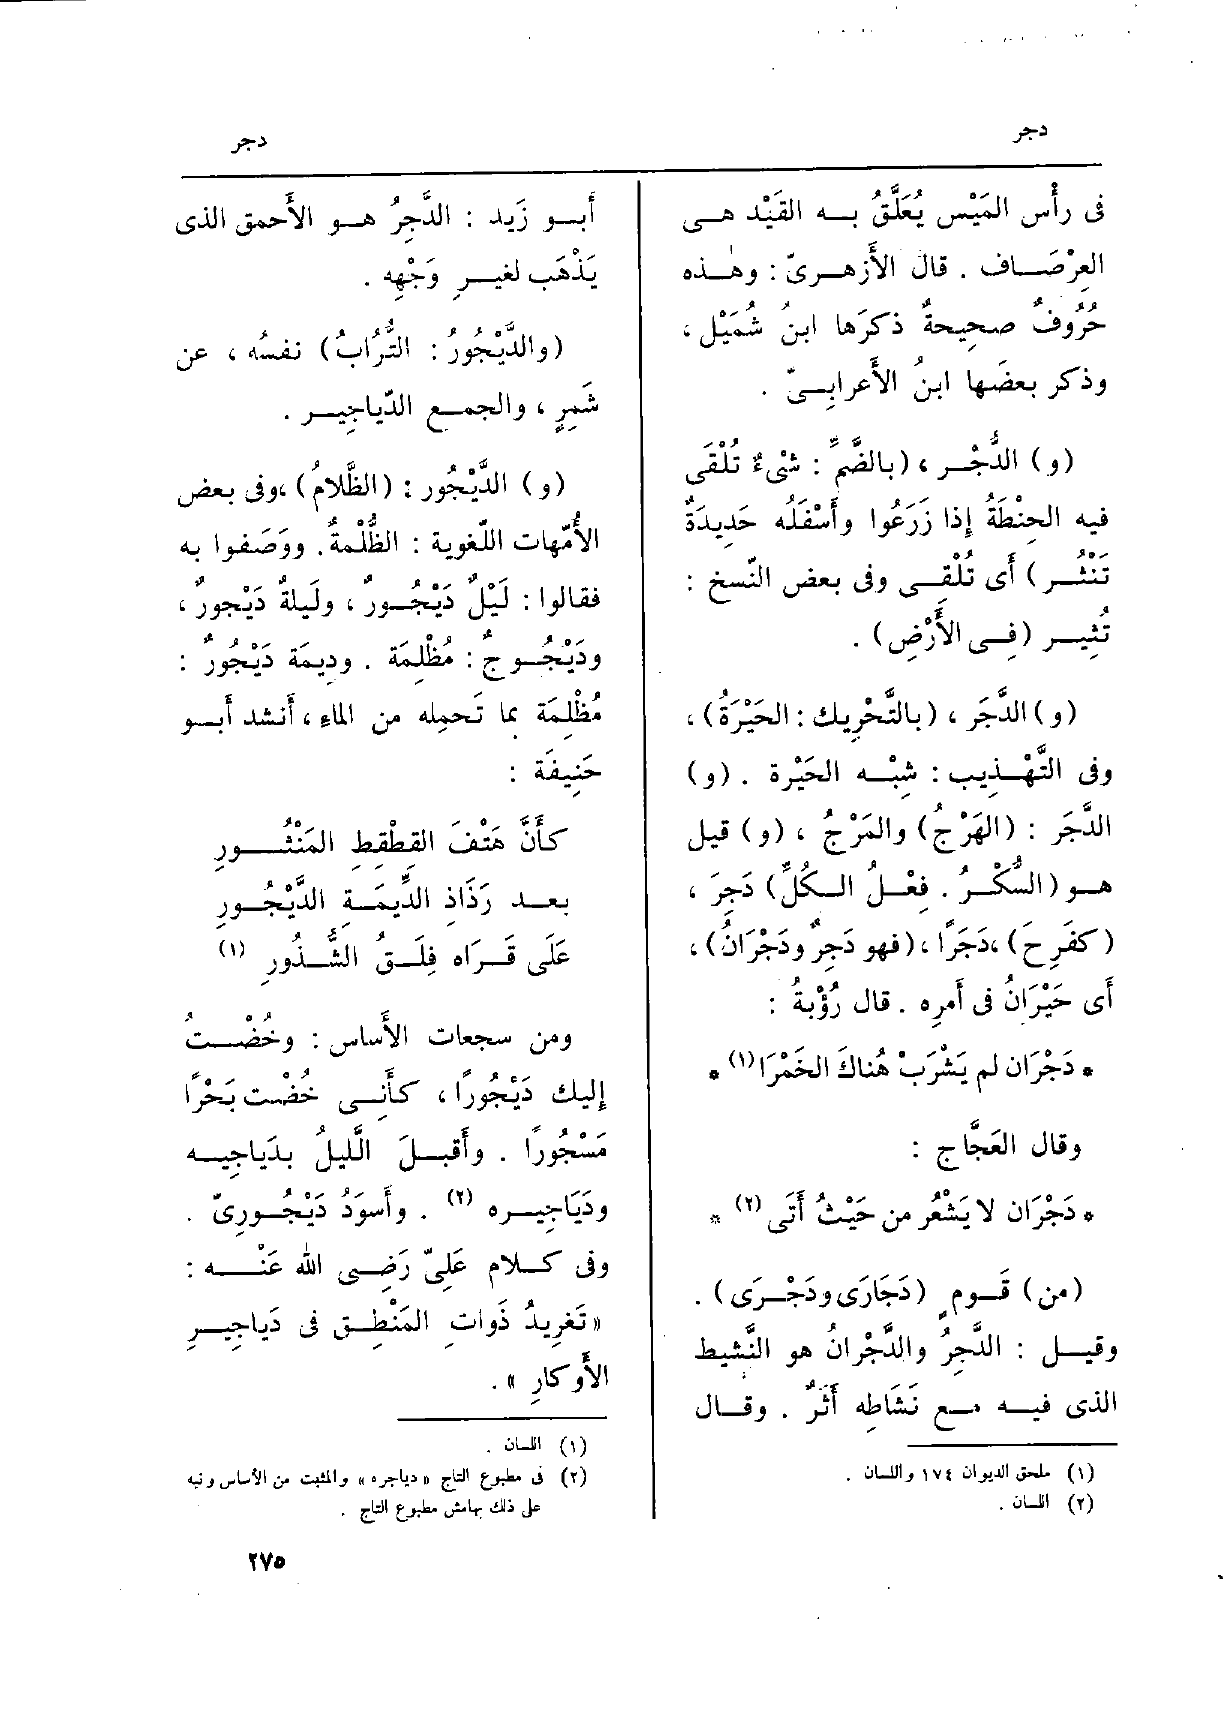 دجر
دجر
فى رأْس المَيْس يُعَلَّقُ بــه القَيْد هــى
العِرْصَــاف . قال الأَزهــرىّ : وهٰـذه
حُرُوفٌ صحيحةٌ ذكرَها ابنُ شُمَيْل ،
وذكر بعضَها ابنُ الأَعرابــىّ .
(و) الدُّجْــر ، (بالضَّمّ : شْىءٌ تُلْقَى
فيه الحِنطَةُ إذا زَرَعُوا وأَسْفَلُه حَدِيدَةٌ
تَنْثُــر) أى تُلْقِــى وفى بعض النّسخ :
تُثِيــر (فِــى الأَرْضِ) .
(و) الدَّجَر ، (بالتَّحْرِيك : الحَيْرَةُ) ،
وفى التَّهْــذِيب : شِبْــه الحَيْرة . (و)
الدَّجَر : (الهَرْجُ) والمَرْجُ ، (و) قيل
هــو (السُّكْــرُ . فِعْــلُ الــكُلِّ) دَجِرَ ،
(كفَرِحَ) ،دَجَرًا ، (فهو دَجِرٌ ودَجْرَانُ) ،
أَى حَيْرَانُ فى أَمرِه . قال رُؤْبةُ :
* دَجْرَان لم يَشْرَبْ هُناكَ الخَمْرَا (١) *
وقال العَجَّاج :
* دَجْرَان لا يَشْعُر من حَيْثُ أَتَى (٢) *
(من) قَــومٍ (دَجَارَى ودَجْــرَى) .
وقيــل : الدَّجِرُ والدَّجْرانُ هو النَّشِيط
الذى فيــه مــع نَشَاطِه أَثَرٌ . وقــال
(١) ملحق الديوان ١٧٤ واللسان .
(٢) اللسان .
أَبــو زَيد : الدَّجِرُ هــو الأَحمق الذى
يَذْهَب لغيــرِ وَجْهِه .
(والدَّيْجُورُ : التُّرَابُ) نفسُه ، عن
شَمِرٍ ، والجمــع الدَّياجِيــر .
(و) الدَّيْجُور : (الظَّلامُ) ،وفى بعض
الأُمّهات اللّغوية : الظُّلْمةُ. ووَصَفوا به
فقالوا : لَيْلٌ دَيْجُــورٌ ، ولَيلةٌ دَيْجورٌ ،
ودَيْجُــوجٌ : مُظْلِمَة . وديمَة دَيْجُورٌ :
مُظْلِمَة بما تَحمِله من الماءِ ، أَنشد أَبــو
حَنِيفَة :
كأَنَّ هَتْفَ القِطْقِطِ المَنْثُــــورِ
بعــد رَذَاذِ الدِّيمَــة الدَّيْجُــورِ
عَلَى قَــرَاه فِلَــقُ الشُّــذُورِ (١)
ومن سجعات الأَساس : وخُضْــتُ
إليك دَيْجُورًا ، كأَنــى خُضْت بَحْرًا
مَسْجُورًا . وأَقبــلَ الَّليلُ بدَياجِيــه
ودَيَاجِيــره (٢) . وأَسوَدُ دَيْجُــورىّ .
وفى كــلام عَلِىّ رَضِــى اللّٰه عَنْــه :
«تَغرِيدُ ذَواتِ المَنْطِــق فى دَياجِيــرِ
الأَوكارِ » .
(١) اللسان .
(٢) فى مطبوع التاج « دياجره » والمثبت من الأساس ونبه
على ذلك بهامش مطبوع التاج .
٢٧٥